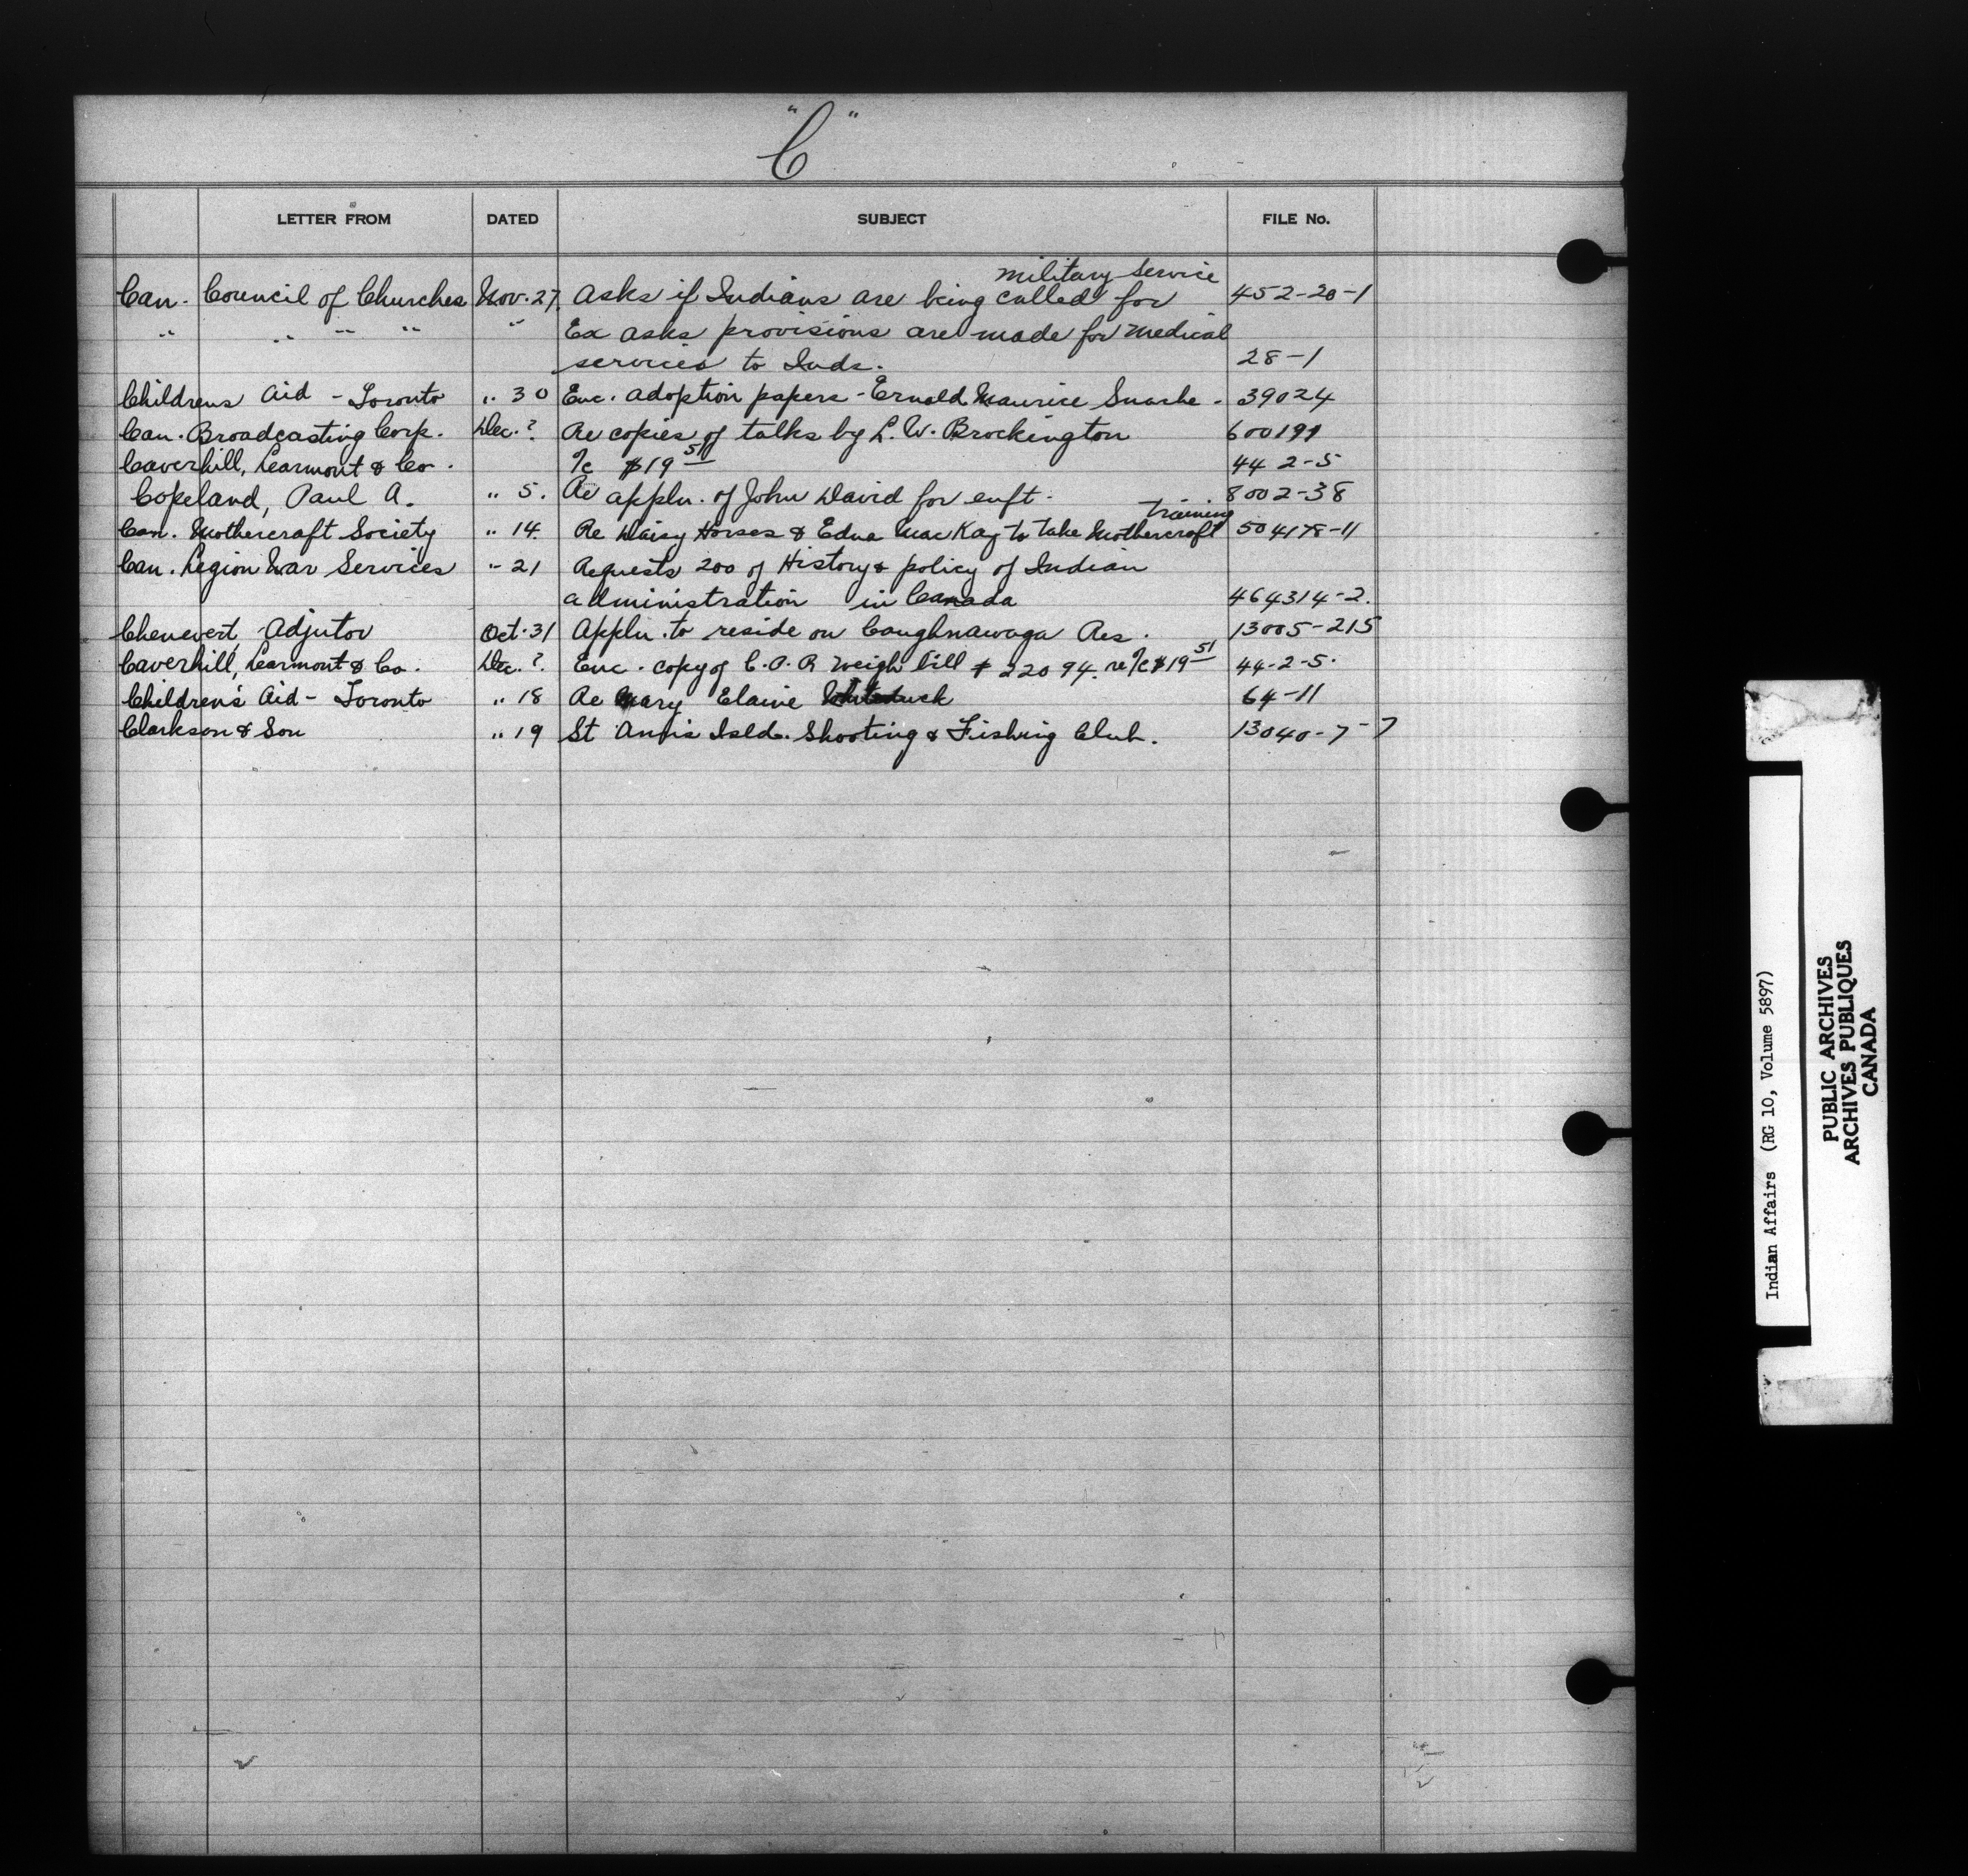 "C"
LETTER FROM DATED SUBJECT FILE No.
military service
Can. Council of Churches Nov. 27. Asks if Indians are being called for 452-20-1
" " " " " Ex asks provisions are made for medical
services to Inds. 28-1
Childrens Aid - Toronto " 30 Enc. adoption papers - Ernold Maurice Snache - 39024
Can. Broadcasting Corp. Dec. ? Re copies of talks by L. W. Brockington 600191
Caverhill, Learmont & Co. 7c $19 51 44 2-5
Copeland, Paul A. " 5. Re appln. of John David for enft. 8002-38
training
Can. Mothercraft Society " 14. Re Daisy Horses & Edna MacKay to take Mothercraft 504178-11
Can. Legion War Services " 21 Requests 200 of History & policy of Indian
administration in Canada 464314-2.
Chenevert, Adjutor Oct. 31 Appln. to reside on Caughnawaga Res. 13005-215
Caverhill, Learmont & Co. Dec. ? Enc. copy of C.P.R weigh bill # 22094. re 7c $19 51 44-2-5.
Children's Aid - Toronto " 18 Re Mary Elaine Whiteduck 64-11
Clarkson & Son " 19 St Ann's Isld. Shooting & Fishing Club. 13040-7-7
Indian Affairs (RG 10, Volume 5897)
PUBLIC ARCHIVES
ARCHIVES PUBLIQUES
CANADA